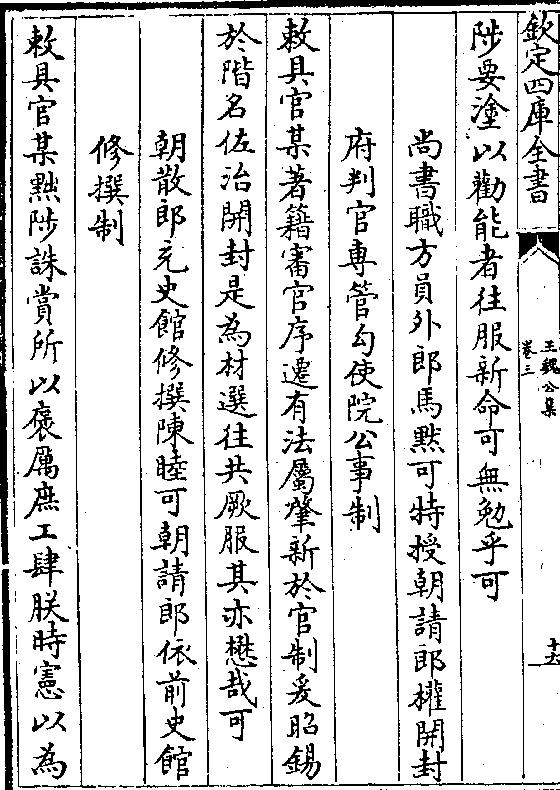 欽定四庫全書
王魏公集
卷三
十六
陟要塗以勸能者往服新命可無勉乎可
尚書職方員外郎馬黙可特授朝請郎權開封
府判官専管勾使院公事制
敕具官某著籍審官序遷有法屬肇新於官制爰昭錫
於階名佐治開封是為材選往共厥服其亦懋哉可
朝散郎充史館修撰陳睦可朝請郎依前史館
修撰制
敕具官某黜陟誅賞所以褒厲庶工肆朕時憲以為